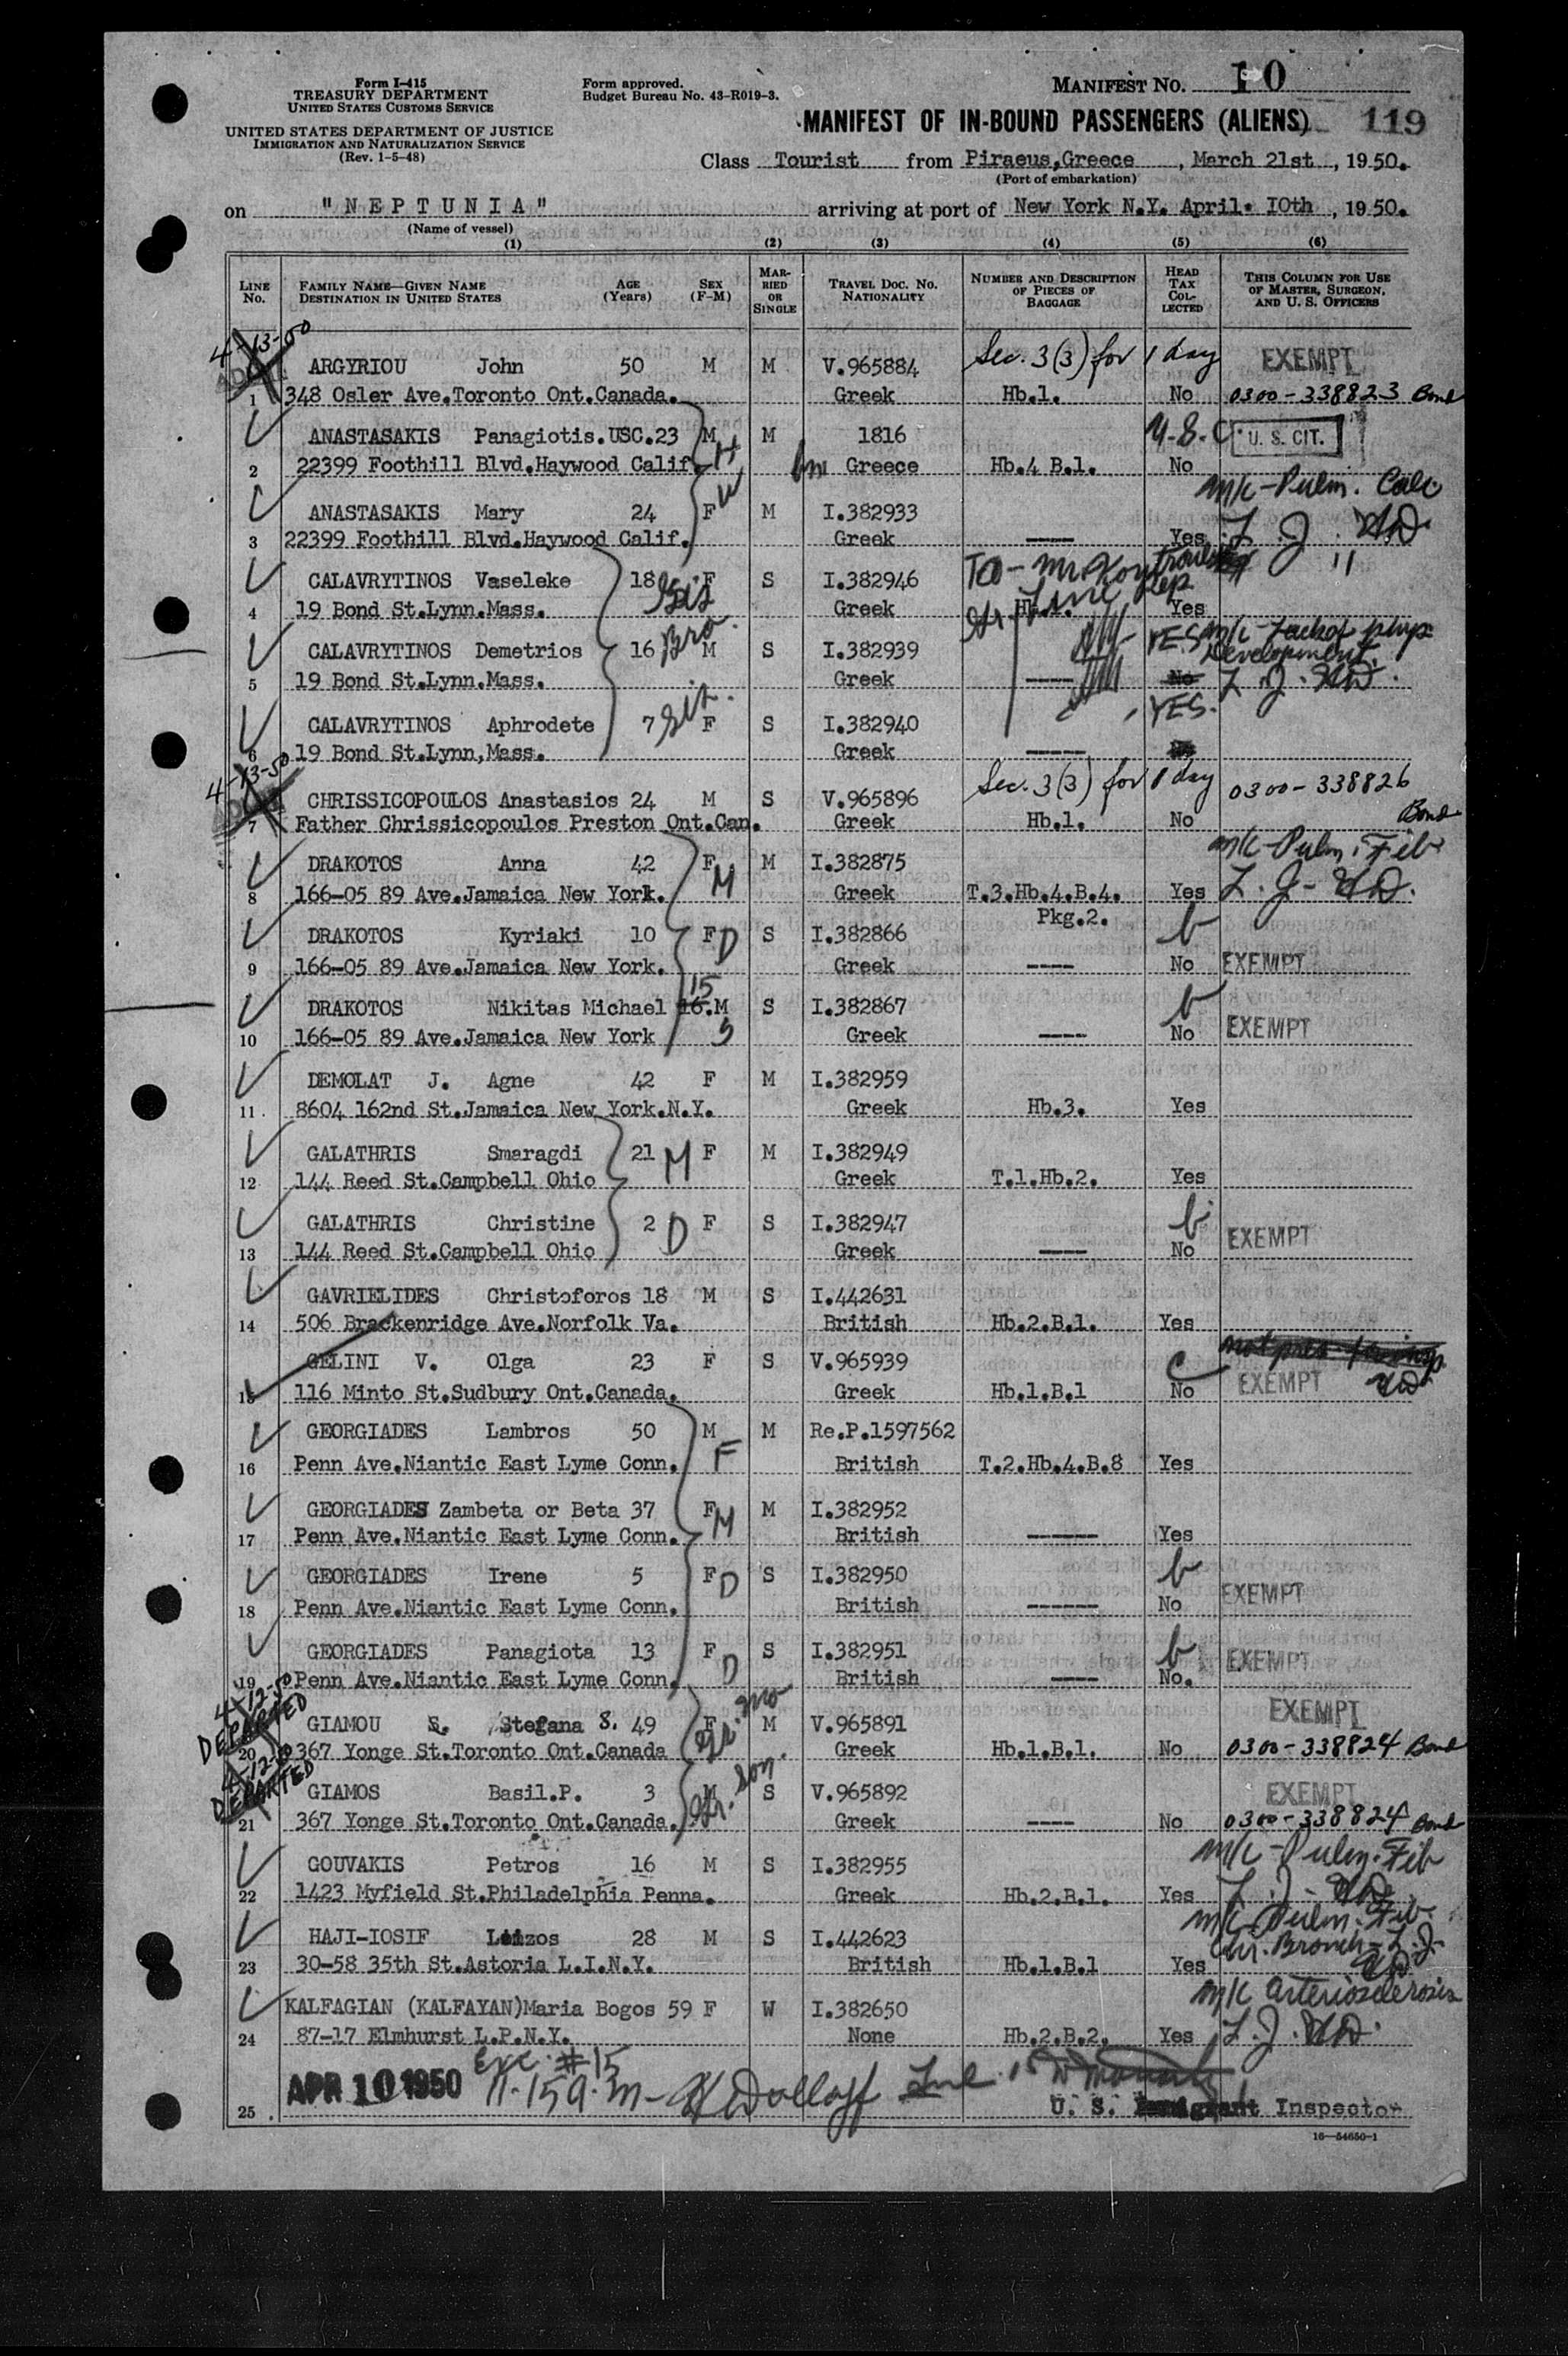 Form I-415
TREASURY DEPARTMENT
UNITED STATES CUSTOMS SERVICE
UNITED STATES DEPARTMENT OF JUSTICE
IMMIGRATION AND NATURALIZATION SERVICE
(Rev. 1-5-48)
Form approved.
Budget Bureau No. 43-R019-3.
MANIFEST NO. 10
MANIFEST OF IN-BOUND PASSENGERS (ALIENS) 119
Class Tourist from Piraeus,Greece, March 21st, 1950.
(Port of embarkation)
on "NEPTUNIA" arriving at port of New York N.Y. April. I0th, 1950.
(Name of vessel)
(1) (2) (3) (4) (5) (6)
LINE No. FAMILY NAME—GIVEN NAME DESTINATION IN UNITED STATES AGE (Years) SEX (F-M) MARRIED OR SINGLE TRAVEL DOC. NO. NATIONALITY NUMBER AND DESCRIPTION OF PIECES OF BAGGAGE HEAD TAX COLLECTED THIS COLUMN FOR USE OF MASTER, SURGEON, AND U. S. OFFICERS
4-13-50
ARGYRIOU John 50 M M V.965884 Sec. 3(3) for 1 day EXEMPT
1 348 Osler Ave.Toronto Ont.Canada. Greek Hb.1. No 0300-338823 Bond
ANASTASAKIS Panagiotis.USC.23 M M 1816 U.S.C. U. S. CIT.
2 22399 Foothill Blvd.Haywood Calif. H Greece Hb.4 B.1. No
m/c-Pulm. Calc
ANASTASAKIS Mary 24 F W M I.382933
3 22399 Foothill Blvd.Haywood Calif. Greek ---- Yes
CALAVRYTINOS Vaseleke 18 Sis F S I.382946
4 19 Bond St.Lynn.Mass. Greek Hb.1. Yes
CALAVRYTINOS Demetrios 16 Bro. M S I.382939 YES m/c-Lack of phys Development.
5 19 Bond St.Lynn.Mass. Greek ---- No
CALAVRYTINOS Aphrodete 7 Sis. F S I.382940 YES.
6 19 Bond St.Lynn,Mass. Greek -----
4-13-50
CHRISSICOPOULOS Anastasios 24 M S V.965896 Sec. 3(3) for 1 day 0300-338826 Bond
7 Father Chrissicopoulos Preston Ont.Can. Greek Hb.1. No
m/c-Pulm. Fib
DRAKOTOS Anna 42 F M M I.382875
8 166-05 89 Ave.Jamaica New York. Greek T.3.Hb.4.B.4. Pkg.2. Yes
DRAKOTOS Kyriaki 10 F D S I.382866 b
9 166-05 89 Ave.Jamaica New York. Greek ---- No EXEMPT
DRAKOTOS Nikitas Michael 15 16.M S I.382867 b
10 166-05 89 Ave.Jamaica New York S Greek ---- No EXEMPT
DEMOLAT J. Agne 42 F M I.382959
11 8604 162nd St.Jamaica New York.N.Y. Greek Hb.3. Yes
GALATHRIS Smaragdi 21 M F M I.382949
12 144 Reed St.Campbell Ohio Greek T.1.Hb.2. Yes
GALATHRIS Christine 2 D F S I.382947 b
13 144 Reed St.Campbell Ohio Greek ---- No EXEMPT
GAVRIELIDES Christoforos 18 M S I.442631
14 506 Brackenridge Ave.Norfolk Va. British Hb.2.B.1. Yes
GELINI V. Olga 23 F S V.965939 C
15 116 Minto St.Sudbury Ont.Canada. Greek Hb.1.B.1 No EXEMPT
GEORGIADES Lambros 50 M M Re.P.1597562
16 Penn Ave.Niantic East Lyme Conn. F British T.2.Hb.4.B.8 Yes
GEORGIADES Zambeta or Beta 37 F M M I.382952
17 Penn Ave.Niantic East Lyme Conn. British ----- Yes
GEORGIADES Irene 5 F D S I.382950 b
18 Penn Ave.Niantic East Lyme Conn. British ------ No EXEMPT
GEORGIADES Panagiota 13 F D S I.382951 b
19 Penn Ave.Niantic East Lyme Conn. British ---- No. EXEMPT
4-12-50 DEPARTED
GIAMOU S. Stefana S. 49 F Gr. Mo M V.965891 EXEMPT
20 367 Yonge St.Toronto Ont.Canada Greek Hb.1.B.1. No 0300-338824 Bond
4-12-50 DEPARTED
GIAMOS Basil.P. 3 M Gr. Son. S V.965892 EXEMPT
21 367 Yonge St.Toronto Ont.Canada. Greek ---- No 0300-338824 Bond
GOUVAKIS Petros 16 M S I.382955 m/c-Pulm. Fib
22 1423 Myfield St.Philadelphia Penna. Greek Hb.2.B.1. Yes
m/c Pulm. Fib.
HAJI-IOSIF Loizos 28 M S I.442623 Chr. Bronch-
23 30-58 35th St.Astoria L.I.N.Y. British Hb.1.B.1 Yes
m/c arteriosclerosis
KALFAGIAN (KALFAYAN)Maria Bogos 59 F W I.382650
24 87-17 Elmhurst L.P.N.Y. None Hb.2.B.2. Yes
Exc. #15
APR 10 1950
25 U. S. Immigrant Inspector
16—54650-1